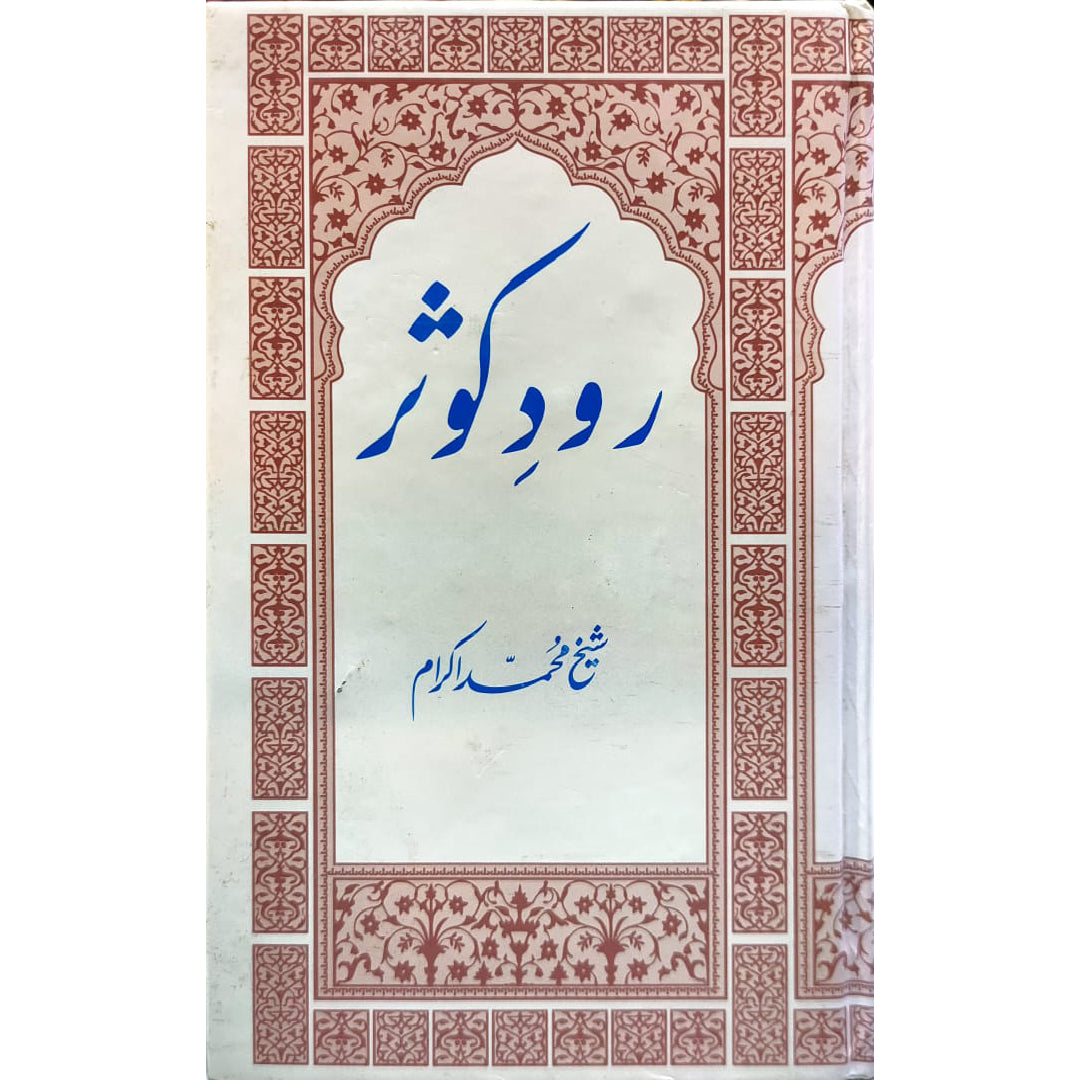 رودِ کوثر
شیخ محُمّد اکرام